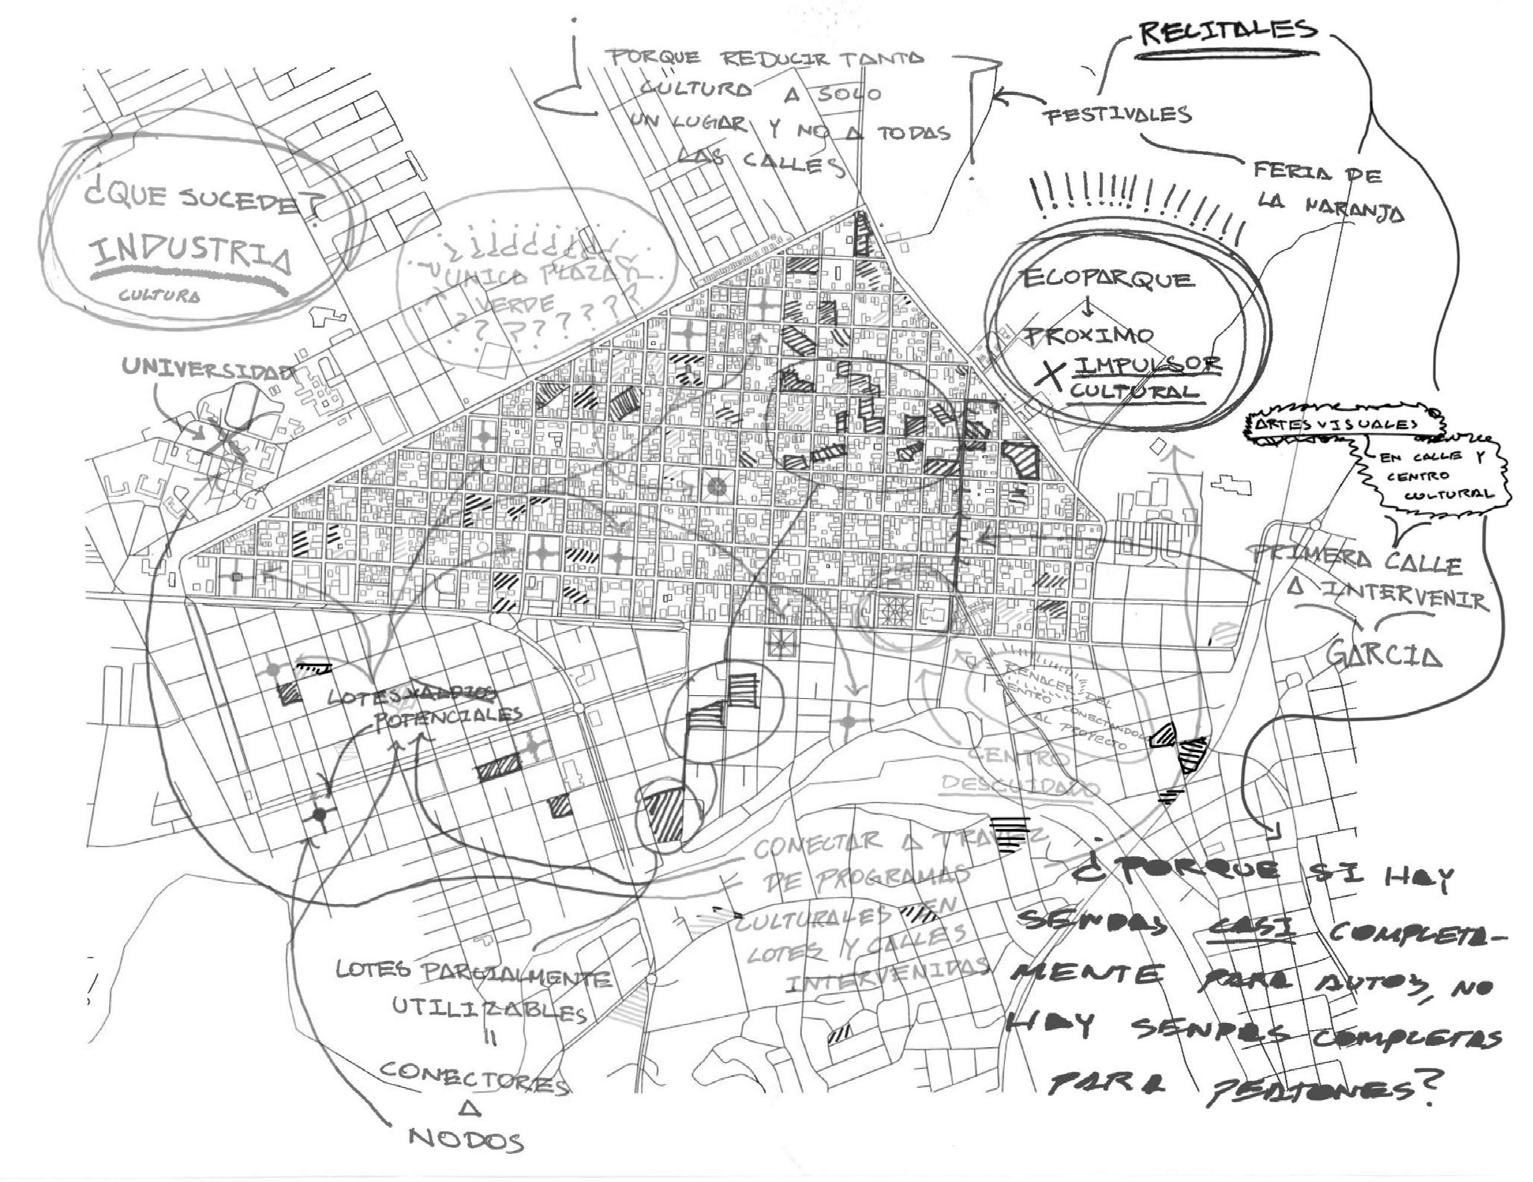 RECITALES
PORQUE REDUCIR TANTA
CULTURA A SOLO
UN LUGAR Y NO A TODAS
LAS CALLES
FESTIVALES
FERIA DE
LA NARANJA
¿QUE SUCEDE?
INDUSTRIA
CULTURA
UNICA PLAZA Y
VERDE
????????
ECOPARQUE
PROXIMO
X IMPULSOR
CULTURAL
UNIVERSIDAD
ARTES VISUALES
EN CALLE Y
CENTRO
CULTURAL
PRIMERA CALLE
A INTERVENIR
GARCIA
LOTES VALDIOS
POTENCIALES
RENACER DEL
CENTRO CONECTANDOLO
AL PROYECTO
CENTRO
DESCUIDADO
CONECTAR A TRAVEZ
DE PROGRAMAS
CULTURALES EN
LOTES Y CALLES
INTERVENIDAS
¿PORQUE SI HAY
SENDAS CASI COMPLETA-
MENTE PARA AUTOS, NO
HAY SENDAS COMPLETAS
PARA PEATONES?
LOTES PARCIALMENTE
UTILIZABLES
=
CONECTORES
A
NODOS